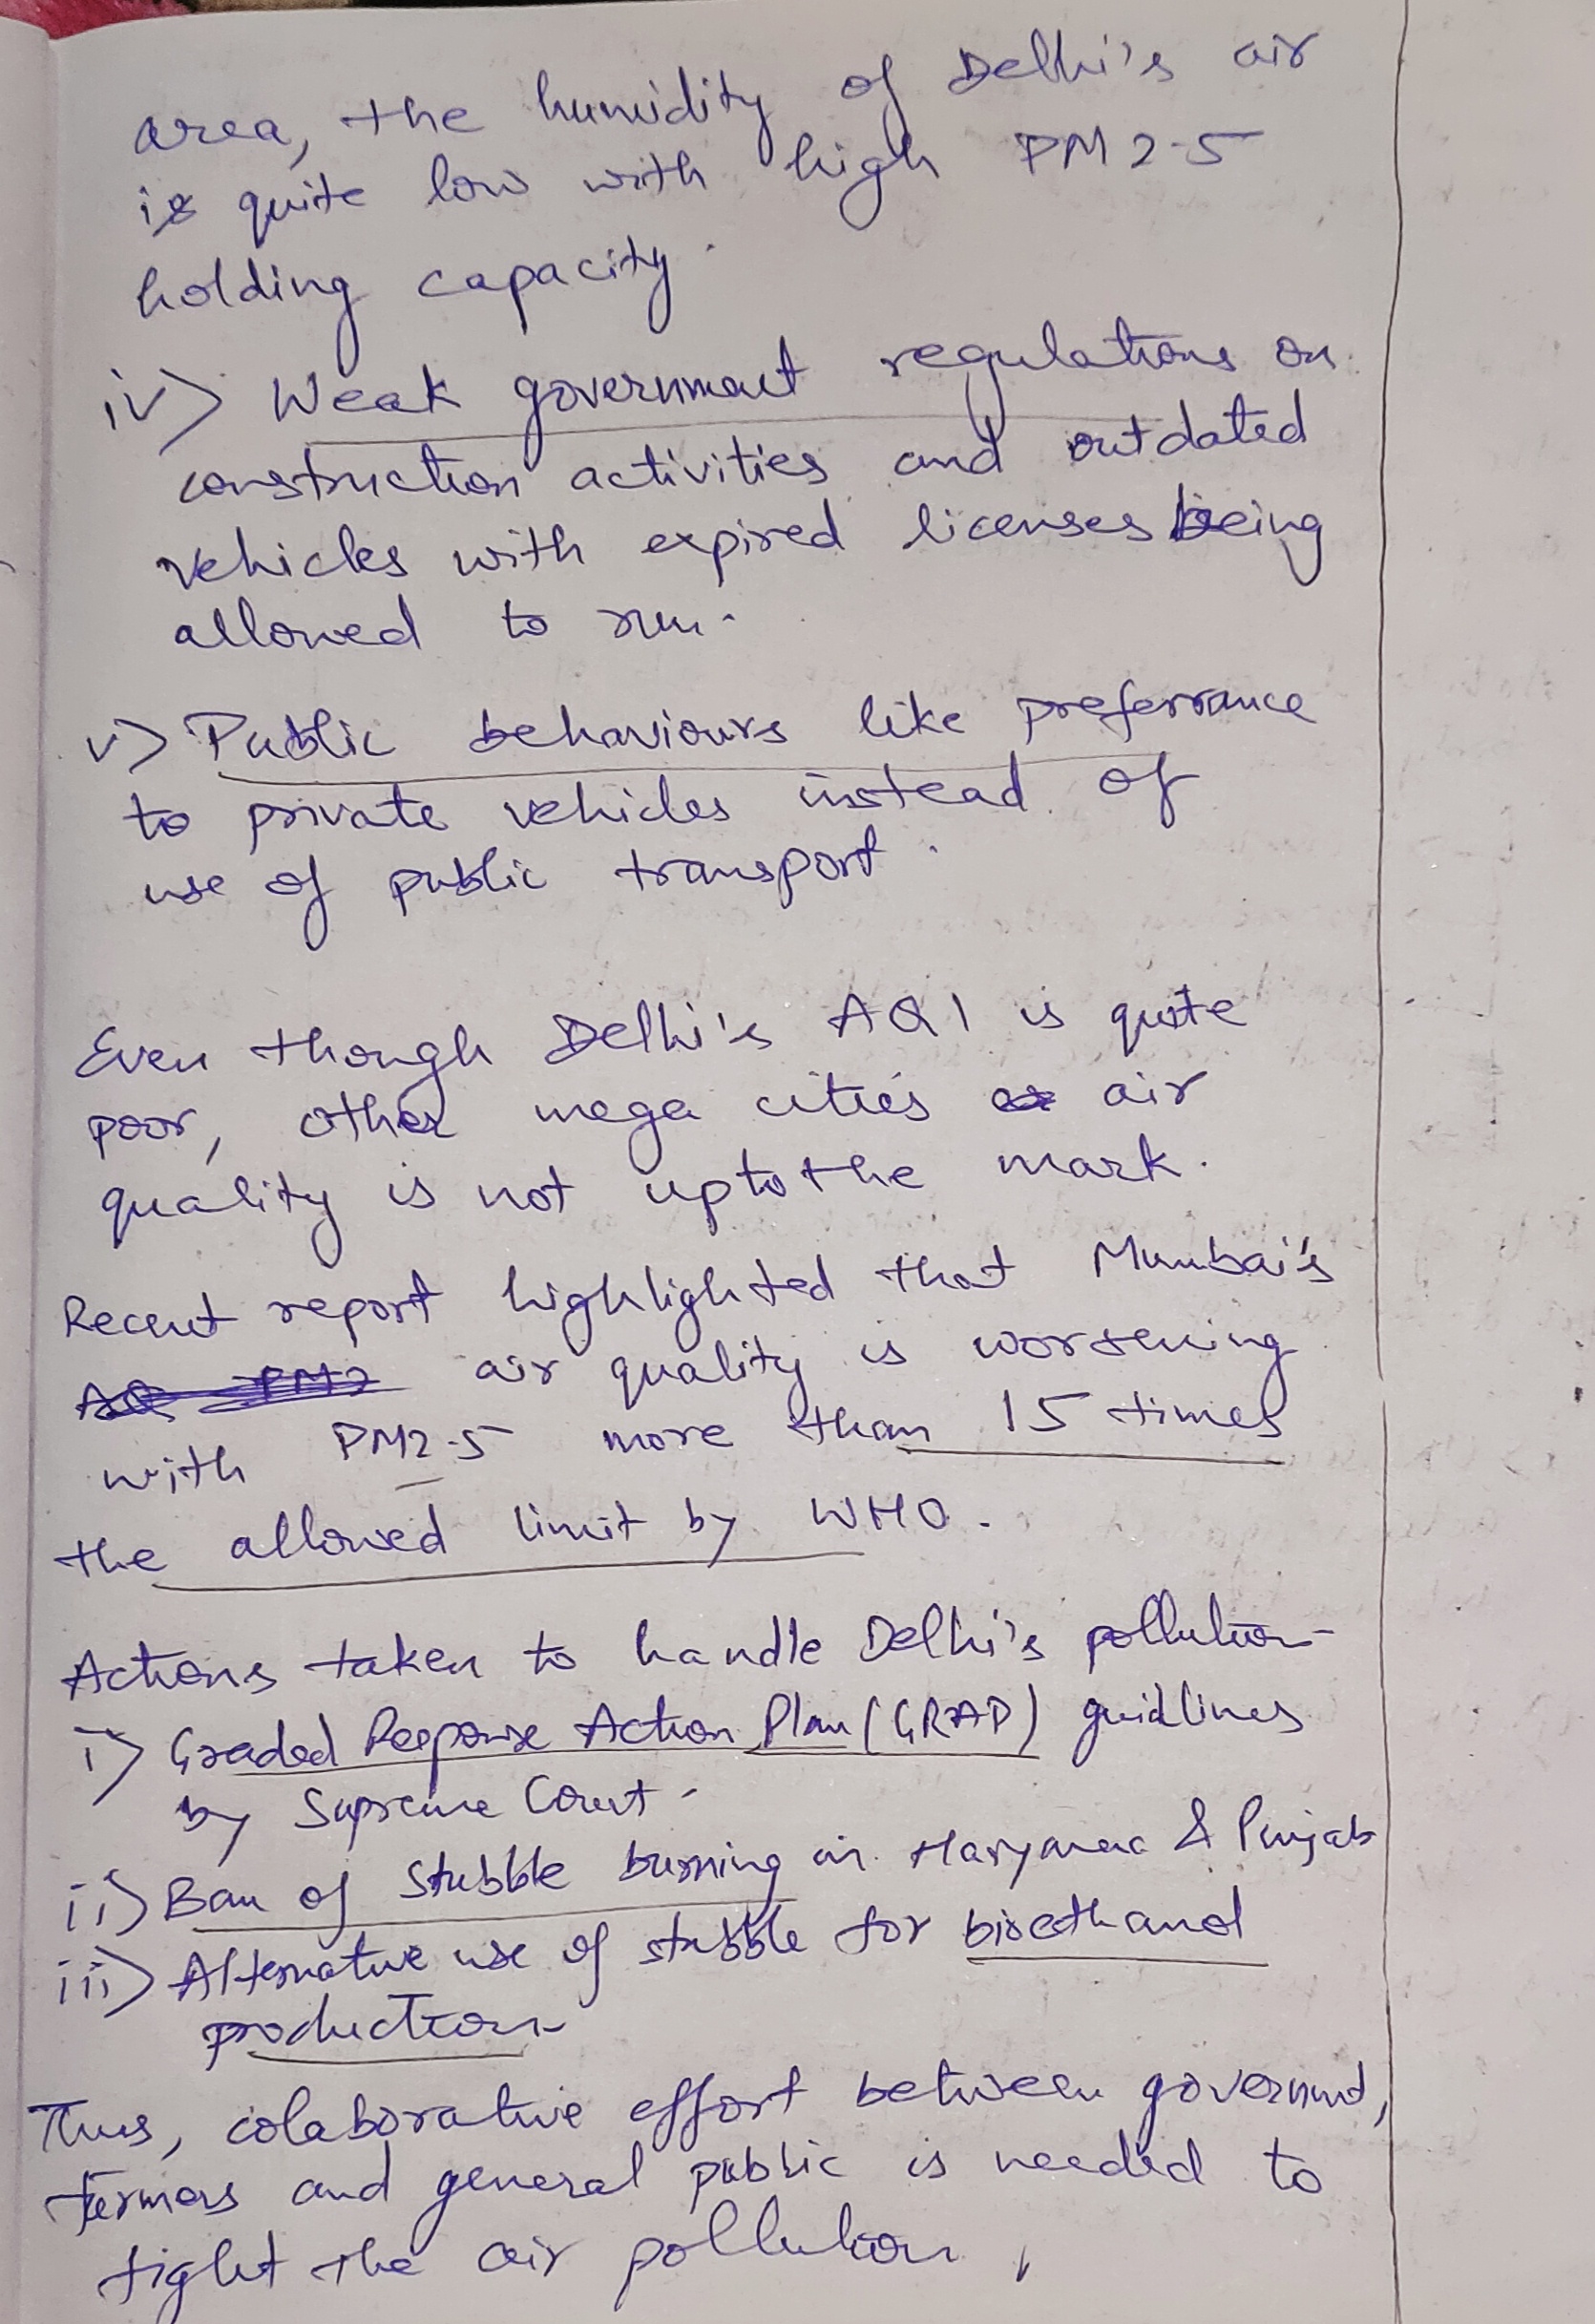 area, the humidity of Delhi's air
is quite low with high PM 2.5
holding capacity.
iv) Weak government regulations on
construction activities and outdated
vehicles with expired licenses being
allowed to run.
v) Public behaviours like preferrance
to private vehicles instead of
use of public transport.
Even though Delhi's AQI is quite
poor, other mega cities air
quality is not upto the mark.
Recent report highlighted that Mumbai's
AQ PM2 air quality is worsening
with PM2.5 more than 15 times
the allowed limit by WHO.
Actions taken to handle Delhi's pollution-
i) Graded Response Action Plan (GRAP) guidlines
by Supreme Court-
ii) Ban of Stubble burning in Haryana & Punjab
iii) Alternative use of stubble for bioethanol
production-
Thus, colaborative effort between government,
farmers and general public is needed to
fight the air pollution.